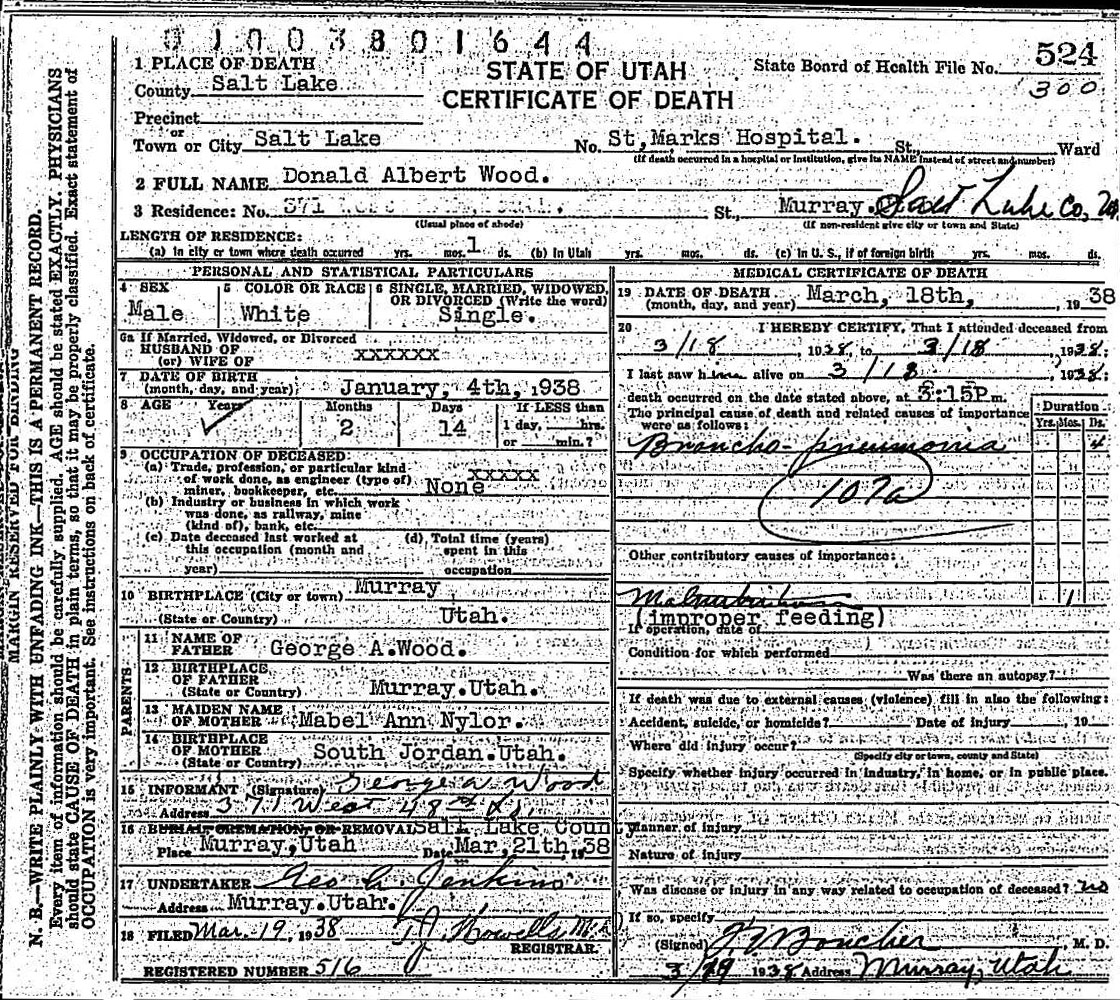 0 1 0 0 3 8 0 1 6 4 4
524
300
1 PLACE OF DEATH
STATE OF UTAH
State Board of Health File No.
County Salt Lake
CERTIFICATE OF DEATH
Precinct
or
Town or City Salt Lake No. St, Marks Hospital. St., Ward
(If death occurred in a hospital or institution, give its NAME instead of street and number)
2 FULL NAME Donald Albert Wood.
3 Residence: No. 371 St., Murray. Salt Lake Co,
(Usual place of abode) (If non-resident give city or town and State)
LENGTH OF RESIDENCE:
(a) In city or town where death occurred yrs. mos. 1 ds. (b) In Utah yrs. mos. ds. (c) In U. S., if of foreign birth yrs. mos. ds.
PERSONAL AND STATISTICAL PARTICULARS
4 SEX
Male
5 COLOR OR RACE
White
6 SINGLE, MARRIED, WIDOWED,
OR DIVORCED (Write the word)
Single.
6a If Married, Widowed, or Divorced
HUSBAND OF
(or) WIFE OF xxxxxx
7 DATE OF BIRTH
(month, day, and year) January, 4th, 1938
8 AGE Years Months Days If LESS than
2 14 1 day, hrs.
or min.?
9 OCCUPATION OF DECEASED:
(a) Trade, profession, or particular kind
of work done, as engineer (type of) xxxxx
miner, bookkeeper, etc. None
(b) Industry or business in which work
was done, as railway, mine
(kind of), bank, etc.
(c) Date deceased last worked at
this occupation (month and
year)
(d) Total time (years)
spent in this
occupation
10 BIRTHPLACE (City or town) Murray
(State or Country) Utah.
PARENTS
11 NAME OF
FATHER George A.Wood.
12 BIRTHPLACE
OF FATHER
(State or Country) Murray.Utah.
13 MAIDEN NAME
OF MOTHER Mabel Ann Nylor.
14 BIRTHPLACE
OF MOTHER
(State or Country) South Jordan.Utah.
15 INFORMANT (Signature) George A. Wood
Address 371 West 48th
16 BURIAL, CREMATION, OR REMOVAL Salt Lake Coun
Place Murray,Utah Date Mar, 21th, 1938
17 UNDERTAKER Geo A. Jenkins
Address Murray.Utah.
18 FILED Mar. 19, 1938
REGISTRAR.
REGISTERED NUMBER 516
MEDICAL CERTIFICATE OF DEATH
19 DATE OF DEATH
(month, day, and year) March, 18th, 1938
20 I HEREBY CERTIFY, That I attended deceased from
3/18 1938, to 3/18 1938;
I last saw him alive on 3/18, 1938;
death occurred on the date stated above, at 3:15P m.
The principal cause of death and related causes of importance
were as follows:
Duration
Yrs. Mos. Ds.
Broncho-pneumonia 4
107a
Other contributory causes of importance:
Malnutrition 1
(improper feeding)
If operation, date of
Condition for which performed
Was there an autopsy?
If death was due to external causes (violence) fill in also the following:
Accident, suicide, or homicide? Date of injury , 19
Where did injury occur?
(Specify city or town, county and State)
Specify whether injury occurred in industry, in home, or in public place.
Manner of injury
Nature of injury
Was disease or injury in any way related to occupation of deceased? no
If so, specify
(Signed) Boucher , M. D.
3/19 1938 Address Murray, Utah
MARGIN RESERVED FOR BINDING
N. B.—WRITE PLAINLY WITH UNFADING INK—THIS IS A PERMANENT RECORD.
Every item of information should be carefully supplied. AGE should be stated EXACTLY. PHYSICIANS
should state CAUSE OF DEATH in plain terms, so that it may be properly classified. Exact statement of
OCCUPATION is very important. See instructions on back of certificate.